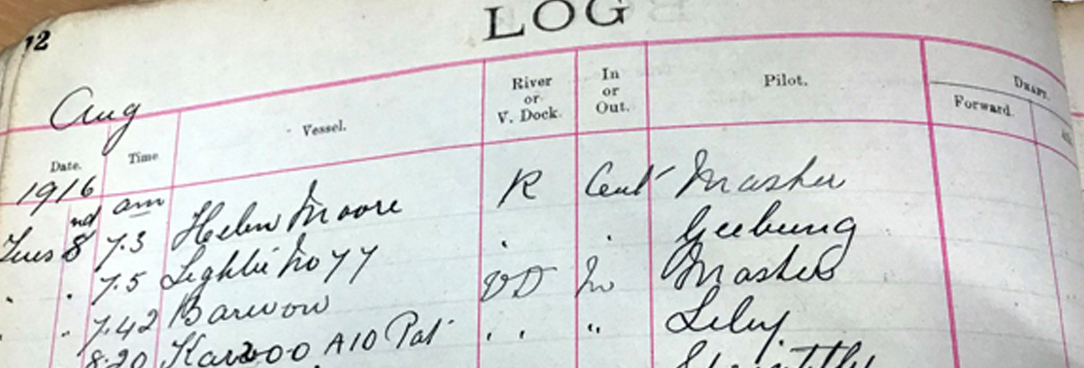 12
LOG
Aug
Date. Time Vessel. River or V. Dock. In or Out. Pilot. DRAFT. Forward.
1916 am R Out Master
Tues 8 nd 7.3 Helen Moore " " Geebung
" " 7.5 Lighter No 77 VD In Master
" " 7.42 Barwon " " " Lily
8.20 Karoo A10 Pat